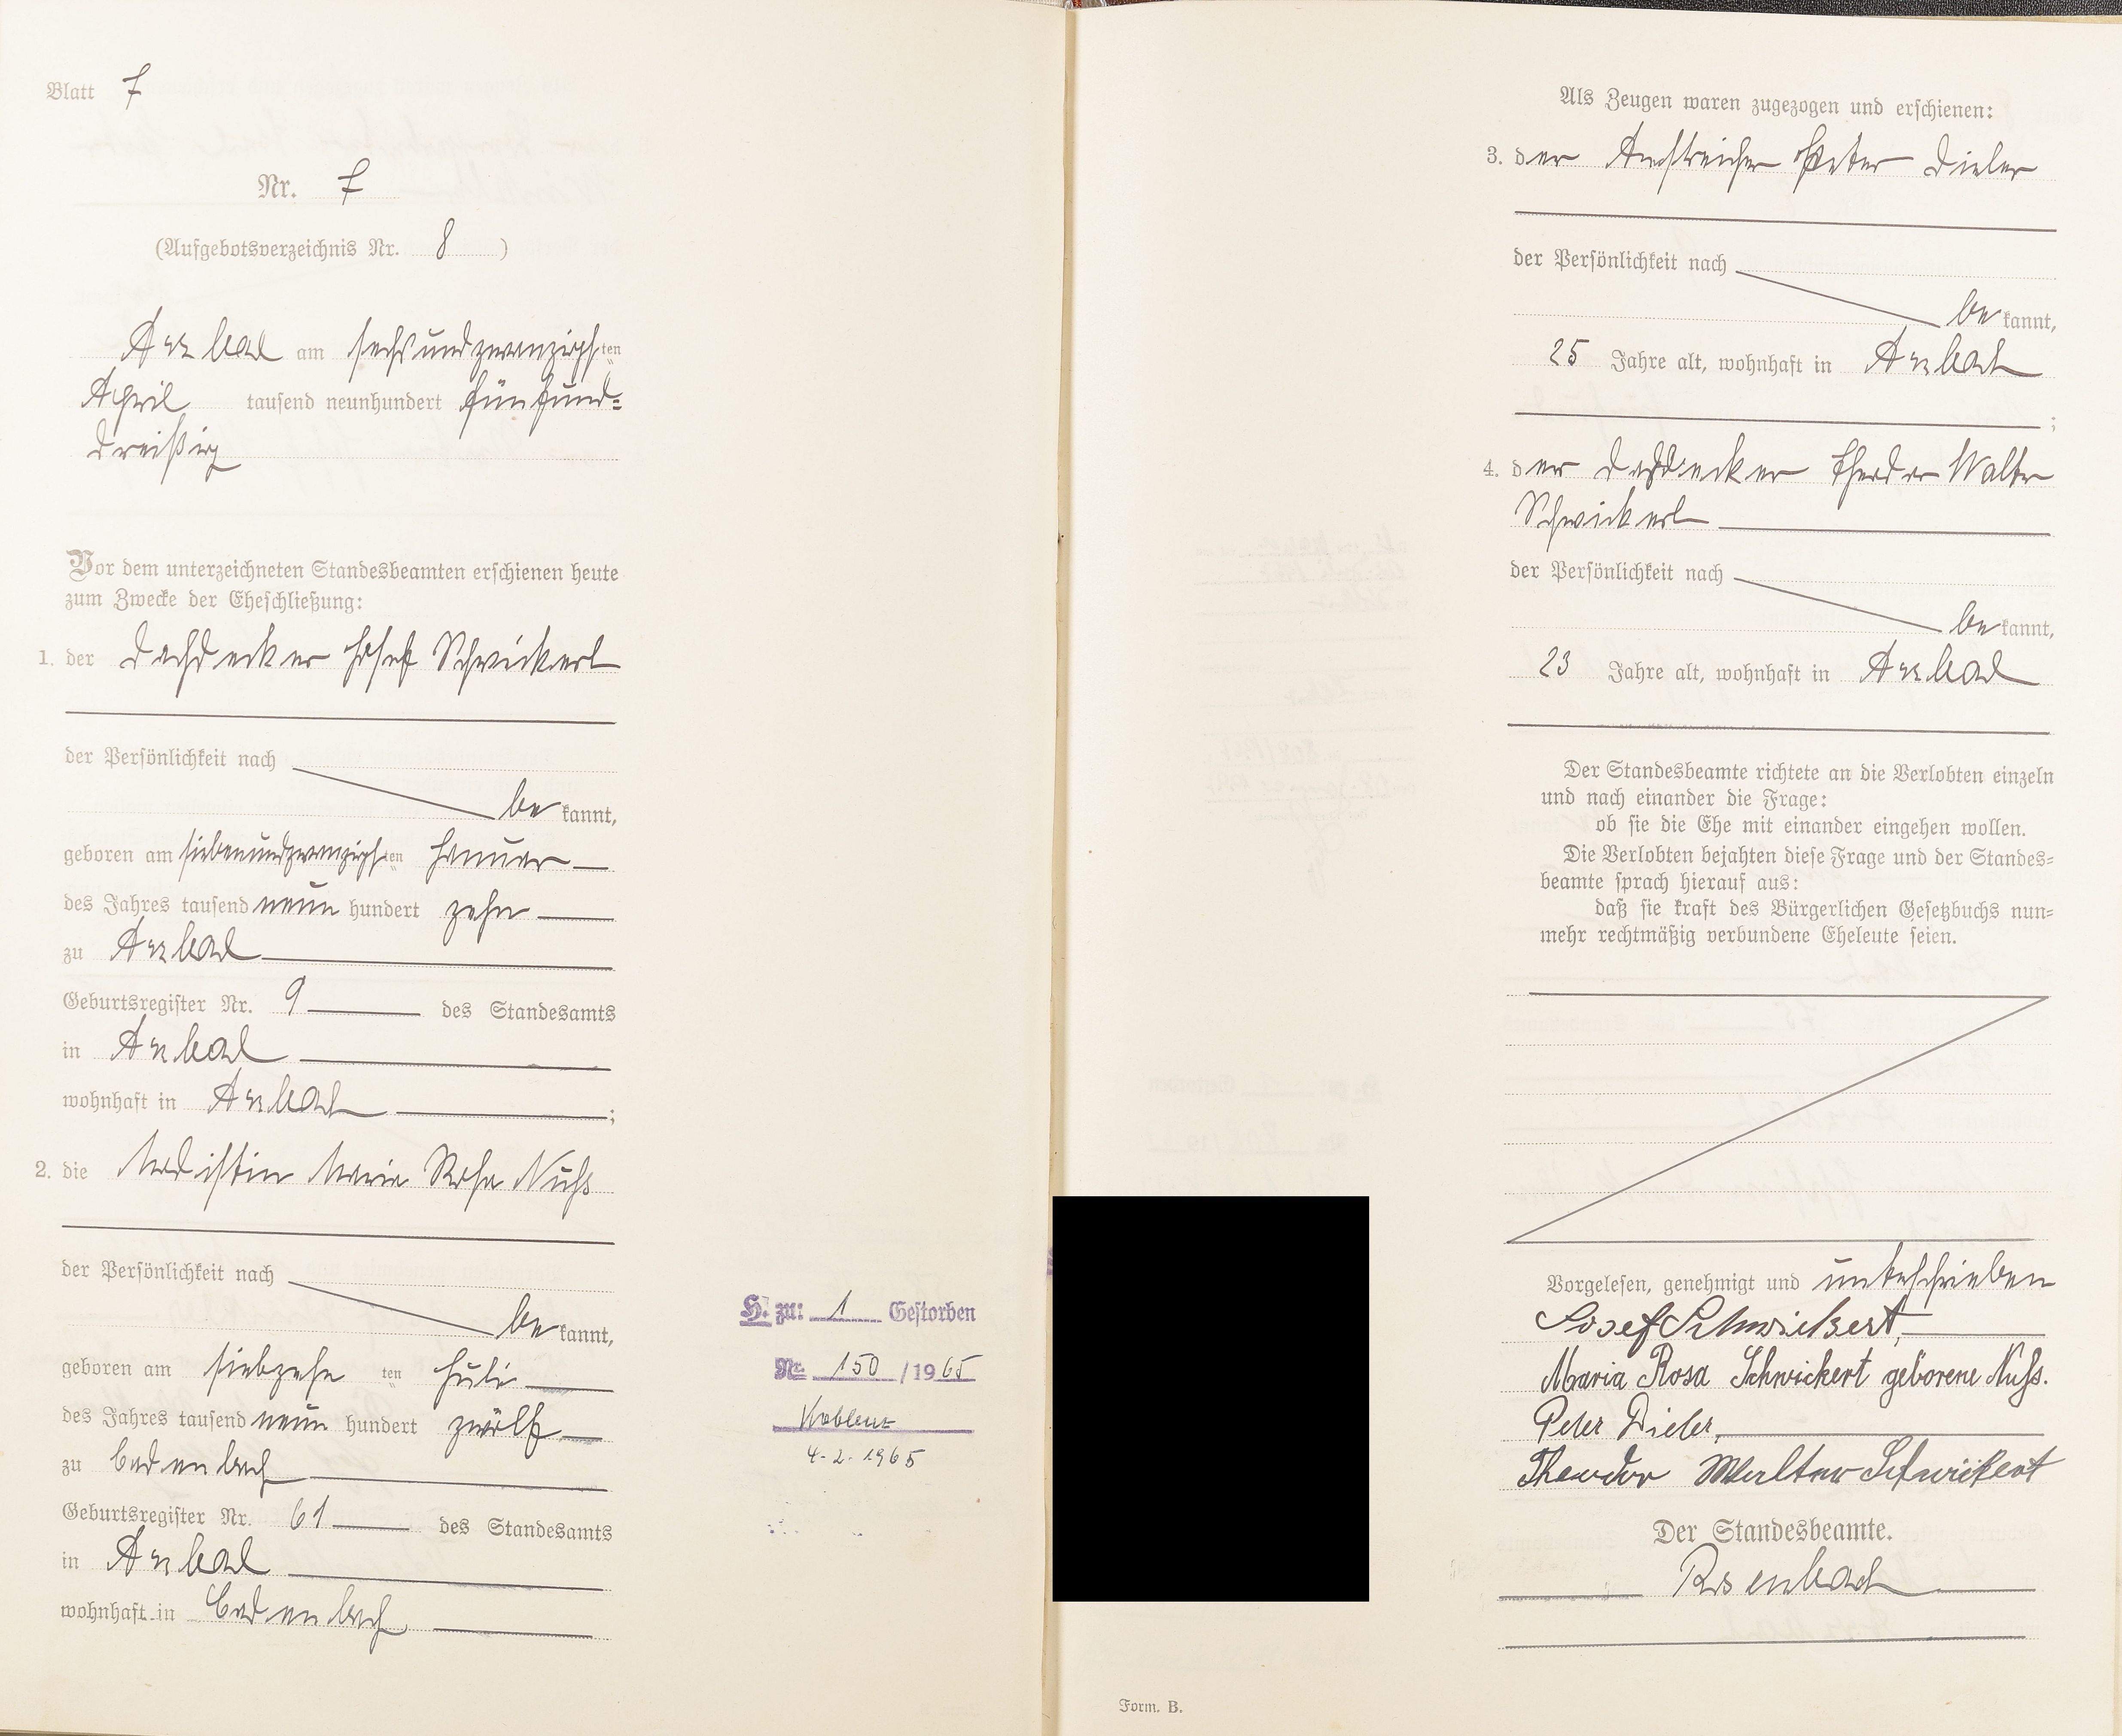 Blatt 7
Nr. 7
(Aufgebotsverzeichnis Nr. 8)
Arzbach am sechsundzwanzigsten
April tausend neunhundert fünfund=
dreißig
Vor dem unterzeichneten Standesbeamten erschienen heute
zum Zwecke der Eheschließung:
1. der Dachdecker Josef Schwickert
der Persönlichkeit nach
bekannt,
geboren am siebenundzwanzigsten Januar
des Jahres tausend neun hundert zehn
zu Arzbach
Geburtsregister Nr. 9 des Standesamts
in Arzbach
wohnhaft in Arzbach;
2. die Modistin Maria Rosa Nuß
der Persönlichkeit nach
bekannt,
geboren am siebzehnten Juli
des Jahres tausend neun hundert zwölf
zu Cadenbach
Geburtsregister Nr. 61 des Standesamts
in Arzbach
wohnhaft in Cadenbach
H. zu: 1 Gestorben
Nr. 150 / 1965
Koblenz
4.2.1965
Als Zeugen waren zugezogen und erschienen:
3. der Anstreicher Peter Dieler
der Persönlichkeit nach
bekannt,
25 Jahre alt, wohnhaft in Arzbach
;
4. der Dachdecker Theodor Walter
Schwickert
der Persönlichkeit nach
bekannt,
23 Jahre alt, wohnhaft in Arzbach
Der Standesbeamte richtete an die Verlobten einzeln
und nach einander die Frage:
ob sie die Ehe mit einander eingehen wollen.
Die Verlobten bejahten diese Frage und der Standes=
beamte sprach hierauf aus:
daß sie kraft des Bürgerlichen Gesetzbuchs nun=
mehr rechtmäßig verbundene Eheleute seien.
Vorgelesen, genehmigt und unterschrieben
Josef Schwickert,
Maria Rosa Schwickert geborene Nuß.
Peter Dieler,
Theodor Walter Schwickert
Der Standesbeamte.
Rosenbach
Form. B.